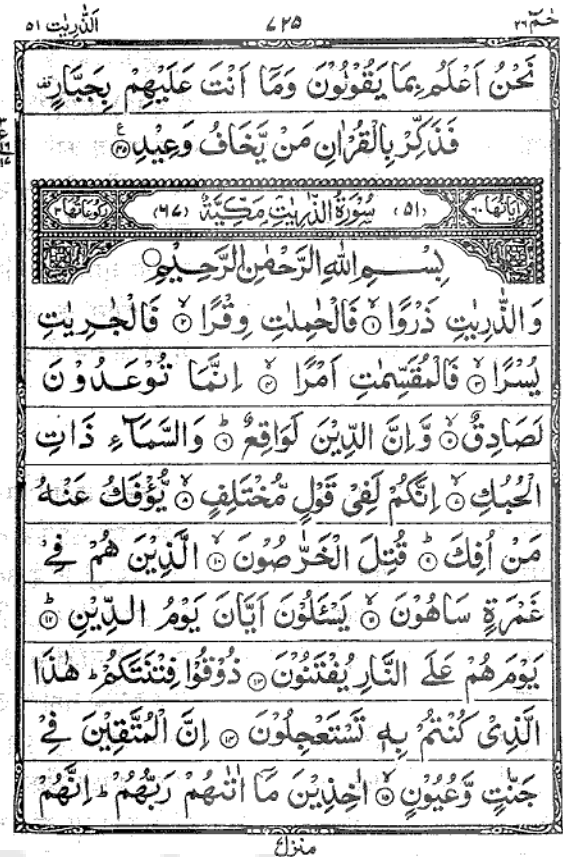 حٰمٓ ٢٦
٧٢٥
الذّٰریٰت ٥١
نَحْنُ اَعْلَمُ بِمَا یَقُوْلُوْنَ وَمَاۤ اَنْتَ عَلَیْهِمْ بِجَبَّارٍ
فَذَکِّرْ بِالْقُرْاٰنِ مَنْ یَّخَافُ وَعِیْدِ ﴿٤٥﴾
اٰیَاتُهَا ٦٠ (٥١) سُوْرَةُ الذّٰرِیٰتِ مَکِّیَّةٌ (٦٧) رُکُوْعَاتُهَا ٣
بِسْمِ اللّٰهِ الرَّحْمٰنِ الرَّحِیْمِ
وَالذّٰرِیٰتِ ذَرْوًا ۙ﴿١﴾ فَالْحٰمِلٰتِ وِقْرًا ۙ﴿٢﴾ فَالْجٰرِیٰتِ
یُسْرًا ۙ﴿٣﴾ فَالْمُقَسِّمٰتِ اَمْرًا ۙ﴿٤﴾ اِنَّمَا تُوْعَدُوْنَ
لَصَادِقٌ ۙ﴿٥﴾ وَّاِنَّ الدِّیْنَ لَوَاقِعٌ ؕ﴿٦﴾ وَالسَّمَآءِ ذَاتِ
الْحُبُكِ ۙ﴿٧﴾ اِنَّکُمْ لَفِیْ قَوْلٍ مُّخْتَلِفٍ ۙ﴿٨﴾ یُّؤْفَكُ عَنْهُ
مَنْ اُفِكَ ؕ﴿٩﴾ قُتِلَ الْخَرّٰصُوْنَ ۙ﴿١٠﴾ الَّذِیْنَ هُمْ فِیْ
غَمْرَةٍ سَاهُوْنَ ۙ﴿١١﴾ یَسْـَٔلُوْنَ اَیَّانَ یَوْمُ الدِّیْنِ ؕ﴿١٢﴾
یَوْمَ هُمْ عَلَی النَّارِ یُفْتَنُوْنَ ﴿١٣﴾ ذُوْقُوْا فِتْنَتَکُمْ ؕ هٰذَا
الَّذِیْ کُنْتُمْ بِهٖ تَسْتَعْجِلُوْنَ ﴿١٤﴾ اِنَّ الْمُتَّقِیْنَ فِیْ
جَنّٰتٍ وَّعُیُوْنٍ ۙ﴿١٥﴾ اٰخِذِیْنَ مَاۤ اٰتٰىهُمْ رَبُّهُمْ ؕ اِنَّهُمْ
منزل ٧